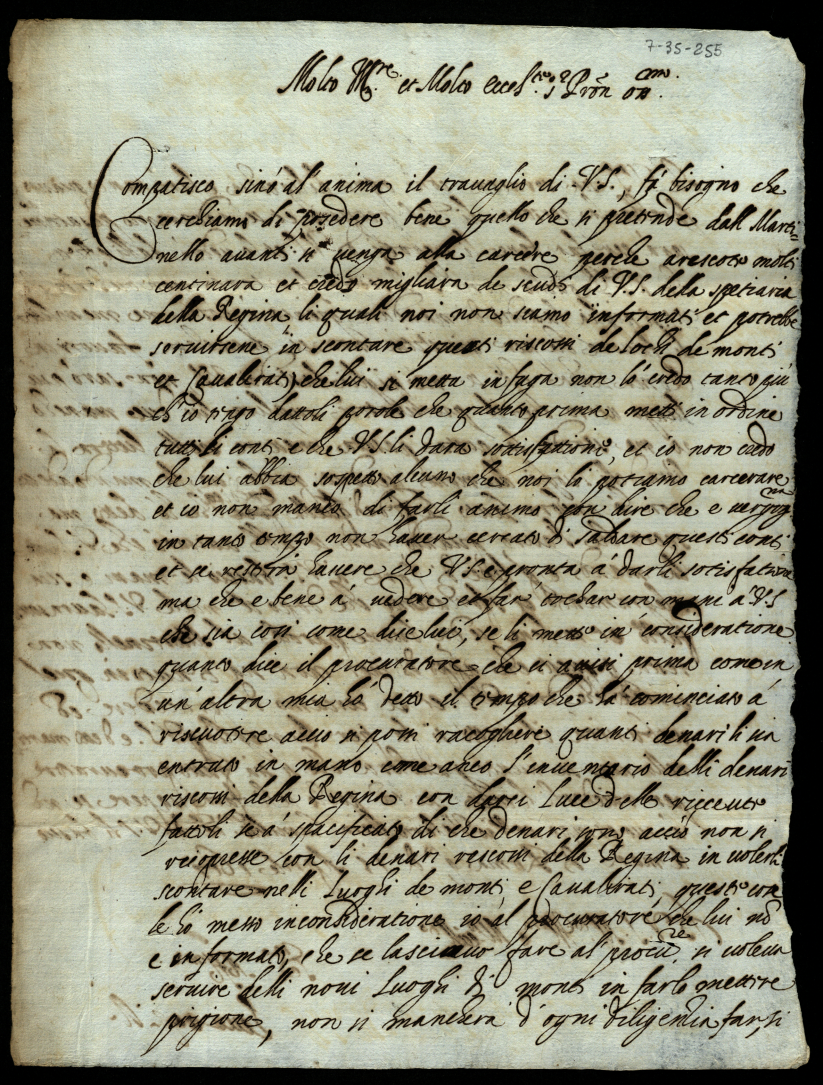 7-35-255
Molto Mre. et Molto eccelte. sr. Pron oss mo.
Compatisco sino al'anima il travaglio di V.S., fa bisogno che
cerchiamo di procedere bene quello che si pretende dall Marti=
nello avanti si venga alla carcere perche a rescoto molti
centinara et credo migliara de scudi di V.S. della spetiaria
della Regina li quali noi non siamo informati et potrebbe
servirsene in scontare questi riscotti de lochi de monti
et Cavalirati, che lui si metta in fuga non lo credo tanto piu
ch'io tengo dattoli parole che quanto prima metti in ordine
tutti li conti e che V.S. li dara sottisfatione, et io non credo
che lui abbia sospetto alcuno che noi lo potiamo carcerare
et io non manco di farli animo con dire che e vergogna
in tanto tempo non haver cercato di saldare questi conti
et se restera havere che V.S. e pronta á darli sotisfatione
ma che e bene á vedere et far tochar con mani a V.S.
che sia cosi come dise lui, se li mette in consideratione
quanto dice il procuratore che si avisi prima come in
un'altra mia hó detto il tempo che há cominciato á
riscuotere accio si possi racogliere quanti denari li sia
entrato in mano come anco l'inventario delli denari
riscossi della Regina con darsi Luce delle riccevute
fattoli se á spacificato di che denari sono accio non si
ricopresse con li denari rescossi della Regina in volerli
scontare nelli Luoghi de monti e Cavalirati, queste cose
le hó messo inconsideratione io al procuratore che lui nó
e informato, che se lasciavo fare al' procure. si voleva
servire delli novi Luoghi di monti in farlo mettere
prigione, non si mancherà d'ogni diligenza farsi